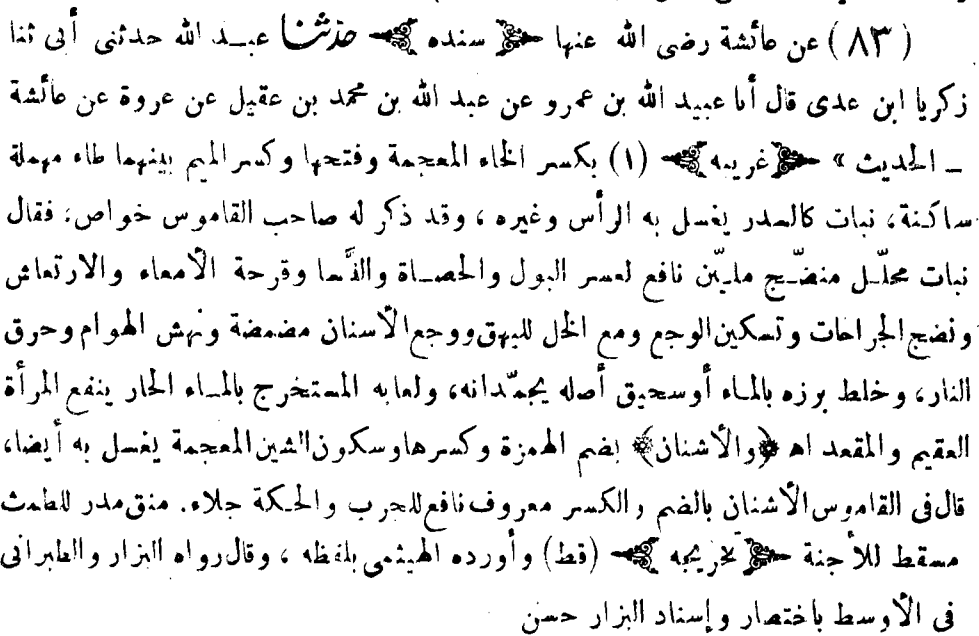 (٨٣) عن عائشة رضى الله عنها ﴿ سنده ﴾ حدثنا عبد الله حدثنى أبى ثنا
زكريا ابن عدى قال أنا عبيد الله بن عمرو عن عبد الله بن محمد بن عقيل عن عروة عن عائشة
ـ الحديث » ﴿ غريبه ﴾ (١) بكسر الخاء المعجمة وفتحها وكسر الميم بينهما طاء مهملة
ساكنة، نبات كالسدر يغسل به الرأس وغيره ، وقد ذكر له صاحب القاموس خواص، فقال
نبات محلّل منضّج مليّن نافع لعسر البول والحصاة والنَّسا وقرحة الأمعاء والارتعاش
ونضج الجراحات وتسكين الوجع ومع الخل للبهق ووجع الأسنان مضمضة ونهش الهوام وحرق
النار، وخلط بزره بالماء أو سحيق أصله يجمّدانه، ولعابه المستخرج بالماء الحار ينفع المرأة
العقيم والمقعد اه ﴿والأشنان﴾ بضم الهمزة وكسرها وسكون الشين المعجمة يغسل به أيضا،
قال فى القاموس الأشنان بالضم والكسر معروف نافع للجرب والحكة جلاء. منق مدر للطمث
مسقط للأجنة ﴿ تخريجه ﴾ (قط) وأورده الهيثمى بلفظه ، وقال رواه البزار والطبرانى
فى الأوسط باختصار وإسناد البزار حسن